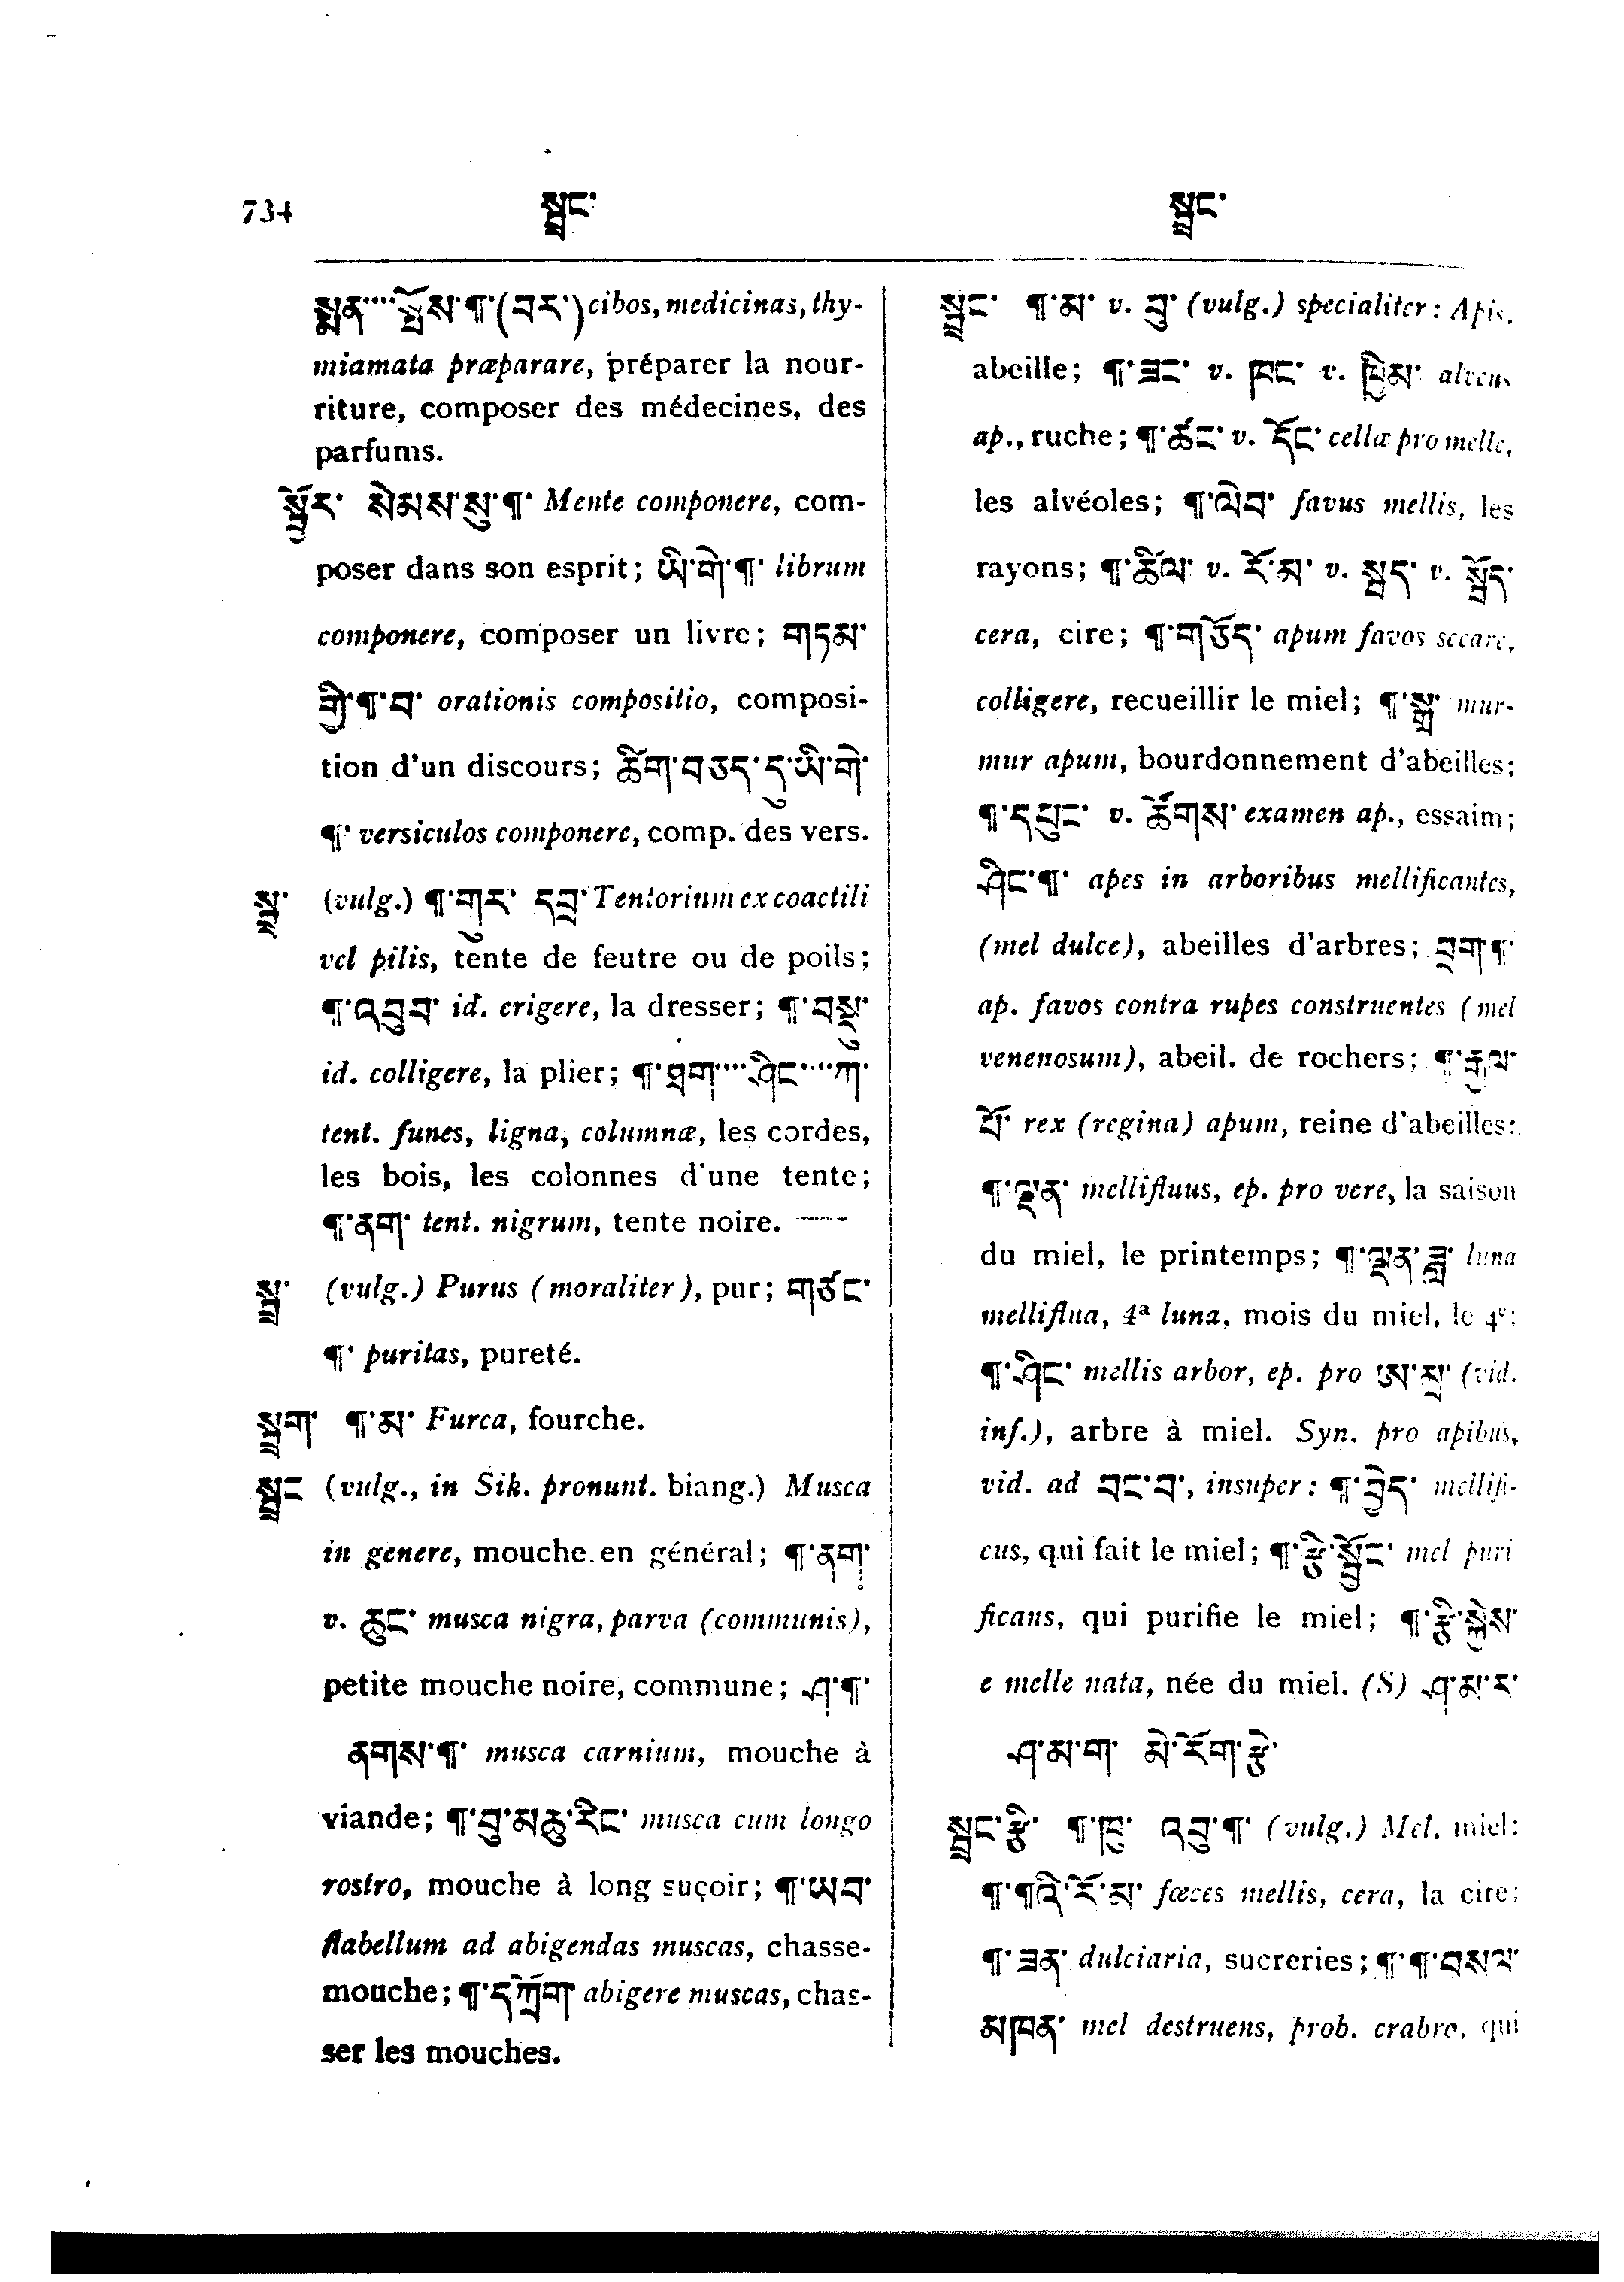 734 སྦྲང་ སྦྲང་
སྨན་་་་སྤོས་¶་(བར་) cibos, medicinas, thy-
miamata præparare, préparer la nour-
riture, composer des médecines, des
parfums.
སྦྱོར་ སེམས་སུ་¶་ Mente componere, com-
poser dans son esprit; ཡི་གེ་¶་ librum
componere, composer un livre; གཏམ་
གྱི་¶་བ་ orationis compositio, composi-
tion d'un discours; ཚིག་བཅད་དུ་ཡི་གེ་
¶་ versiculos componere, comp. des vers.
སྦྲ་ (vulg.) ¶་གུར་ དབྲ་ Tentorium ex coactili
vel pilis, tente de feutre ou de poils;
¶་འབུབ་ id. erigere, la dresser; ¶་བསྡུ་
id. colligere, la plier; ¶་ཐག་་་་ཤིང་་་་ཀ་
tent. funes, ligna, columnæ, les cordes,
les bois, les colonnes d'une tente;
¶་ནག་ tent. nigrum, tente noire.
སྦྲ་ (vulg.) Purus (moraliter), pur; གཙང་
¶་ puritas, pureté.
སྦྲག་ ¶་མ་ Furca, fourche.
སྦྲང (vulg., in Sik. pronunt. biang.) Musca
in genere, mouche en général; ¶་ནག་
v. ཆུང་ musca nigra, parva (communis),
petite mouche noire, commune; ཤ་¶་
ནགས་¶་ musca carnium, mouche à
viande; ¶་བུ་མཆུ་རིང་ musca cum longo
rostro, mouche à long suçoir; ¶་ཡབ་
flabellum ad abigendas muscas, chasse-
mouche; ¶་དཀྲོག་ abigere muscas, chas-
ser les mouches.
སྦྲང་ ¶་མ་ v. བུ་ (vulg.) specialiter: Apis,
abeille; ¶་ཟང་ v. ཁང་ v. ཁྱིམ་ alveus
ap., ruche; ¶་ཚང་ v. དོང་ cellæ pro melle,
les alvéoles; ¶་ལེབ་ favus mellis, les
rayons; ¶་ཚིལ་ v. རོ་མ་ v. སྤྲད་ v. སྤྲོད་
cera, cire; ¶་གཅོད་ apum favos secare,
colligere, recueillir le miel; ¶་སྒྲ་ mur-
mur apum, bourdonnement d'abeilles;
¶་དཔུང་ v. ཚོགས་ examen ap., essaim;
ཤིང་¶་ apes in arboribus mellificantes,
(mel dulce), abeilles d'arbres; བྲག་¶་
ap. favos contra rupes construentes (mel
venenosum), abeil. de rochers; ¶་རྒྱལ་
པོ་ rex (regina) apum, reine d'abeilles:
¶་ལྡན་ mellifluus, ep. pro vere, la saison
du miel, le printemps; ¶་ལྡན་ཟླ་ luna
melliflua, 4ª luna, mois du miel, le 4e;
¶་ཤིང་ mellis arbor, ep. pro ཨ་མྲ་ (vid.
inf.), arbre à miel. Syn. pro apibus,
vid. ad བང་བ་, insuper: ¶་བྱེད་ mellifi-
cus, qui fait le miel; ¶་རྩི་སྦྱོང་ mel puri
ficans, qui purifie le miel; ¶་རྩི་སྐྱེས་
e melle nata, née du miel. (S) ཤ་མ་ར་
ཤ་མ་ག་ མེ་རོག་རྩེ་
སྦྲང་རྩི་ ¶་ཁུ་ འབུ་¶་ (vulg.) Mel, miel:
¶་¶འི་རོ་མ་ fæces mellis, cera, la cire;
¶་ཟན་ dulciaria, sucreries; ¶་¶་བསལ་
མཁན་ mel destruens, prob. crabro, qui